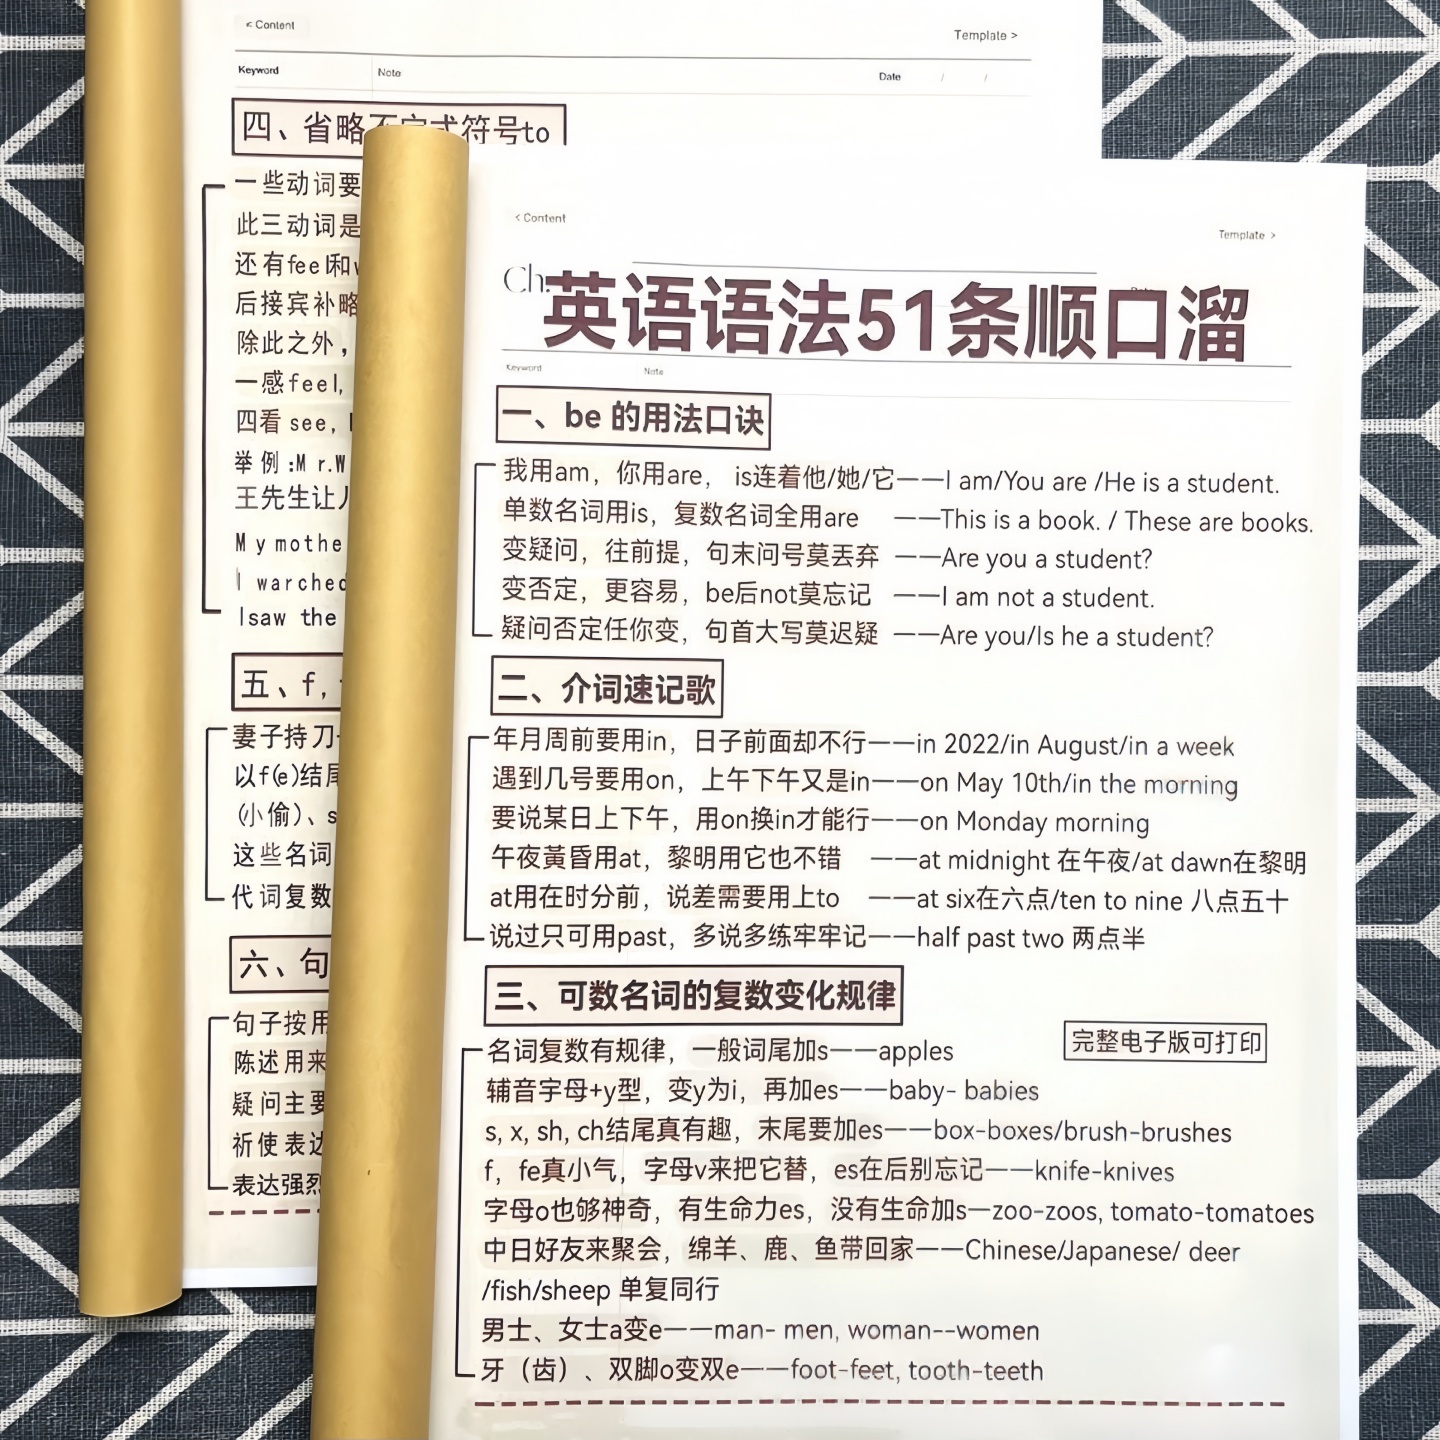 < Content
Template >
Keyword
Note
Date / /
四、省略不定式符号to
一些动词要
此三动词是
还有feel和
后接宾补略
除此之外，
一感feel,
四看 see,
举例:Mr.W
王先生让儿
My mothe
I warched
Isaw the
五、f,
妻子持刀
以f(e)结尾
(小偷)、s
这些名词
代词复数
六、句
句子按用
陈述用来
疑问主要
祈使表达
表达强烈
< Content
Template >
Ch.
英语语法51条顺口溜
Keyword
Note
一、be 的用法口诀
我用am，你用are， is连着他/她/它——I am/You are /He is a student.
单数名词用is，复数名词全用are ——This is a book. / These are books.
变疑问，往前提，句末问号莫丢弃 ——Are you a student?
变否定，更容易，be后not莫忘记 ——I am not a student.
疑问否定任你变，句首大写莫迟疑 ——Are you/Is he a student?
二、介词速记歌
年月周前要用in，日子前面却不行——in 2022/in August/in a week
遇到几号要用on，上午下午又是in——on May 10th/in the morning
要说某日上下午，用on换in才能行——on Monday morning
午夜黃昏用at，黎明用它也不错 ——at midnight 在午夜/at dawn在黎明
at用在时分前，说差需要用上to ——at six在六点/ten to nine 八点五十
说过只可用past，多说多练牢牢记——half past two 两点半
三、可数名词的复数变化规律
完整电子版可打印
名词复数有规律，一般词尾加s——apples
辅音字母+y型，变y为i，再加es——baby- babies
s, x, sh, ch结尾真有趣，末尾要加es——box-boxes/brush-brushes
f，fe真小气，字母v来把它替，es在后别忘记——knife-knives
字母o也够神奇，有生命力es，没有生命加s—zoo-zoos, tomato-tomatoes
中日好友来聚会，绵羊、鹿、鱼带回家——Chinese/Japanese/ deer
/fish/sheep 单复同行
男士、女士a变e——man- men, woman--women
牙（齿）、双脚o变双e——foot-feet, tooth-teeth